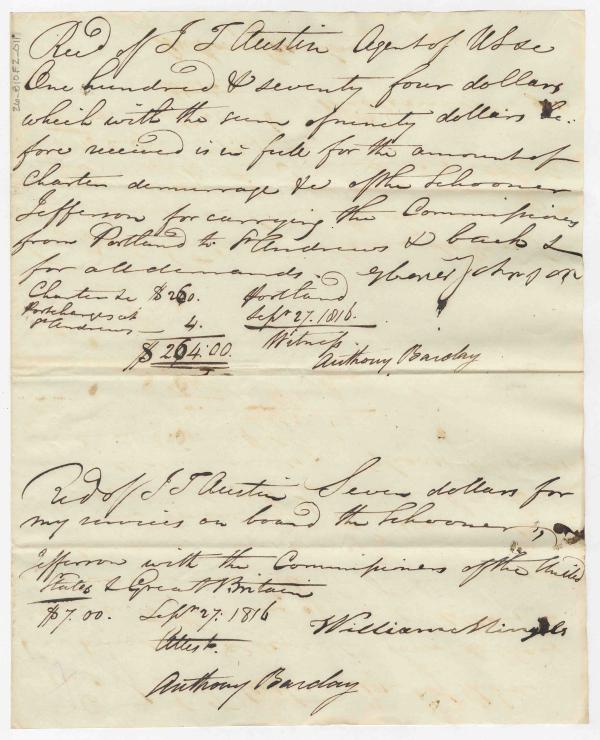 Recd of J T Austin Agent of US &c
One hundred & seventy four dollars
which with the sum of ninety dollars be-
fore received is in full for the amount of
Charter demurrage &c of the Schooner
Jefferson for carrying the Commissioners
from Portland to St Andrews & back &
for all demands.
Charter &c $260. Portland
Port charges at Septr 27. 1816.
St Andrews — 4. Witness
$264:00. Anthony Barclay
Recd of J T Austin Seven dollars for
my services on board the Schooner
Jefferson with the Commissioners of the United
States & Great Britain
$7.00. Septr 27. 1816
Attest.
William
Anthony Barclay